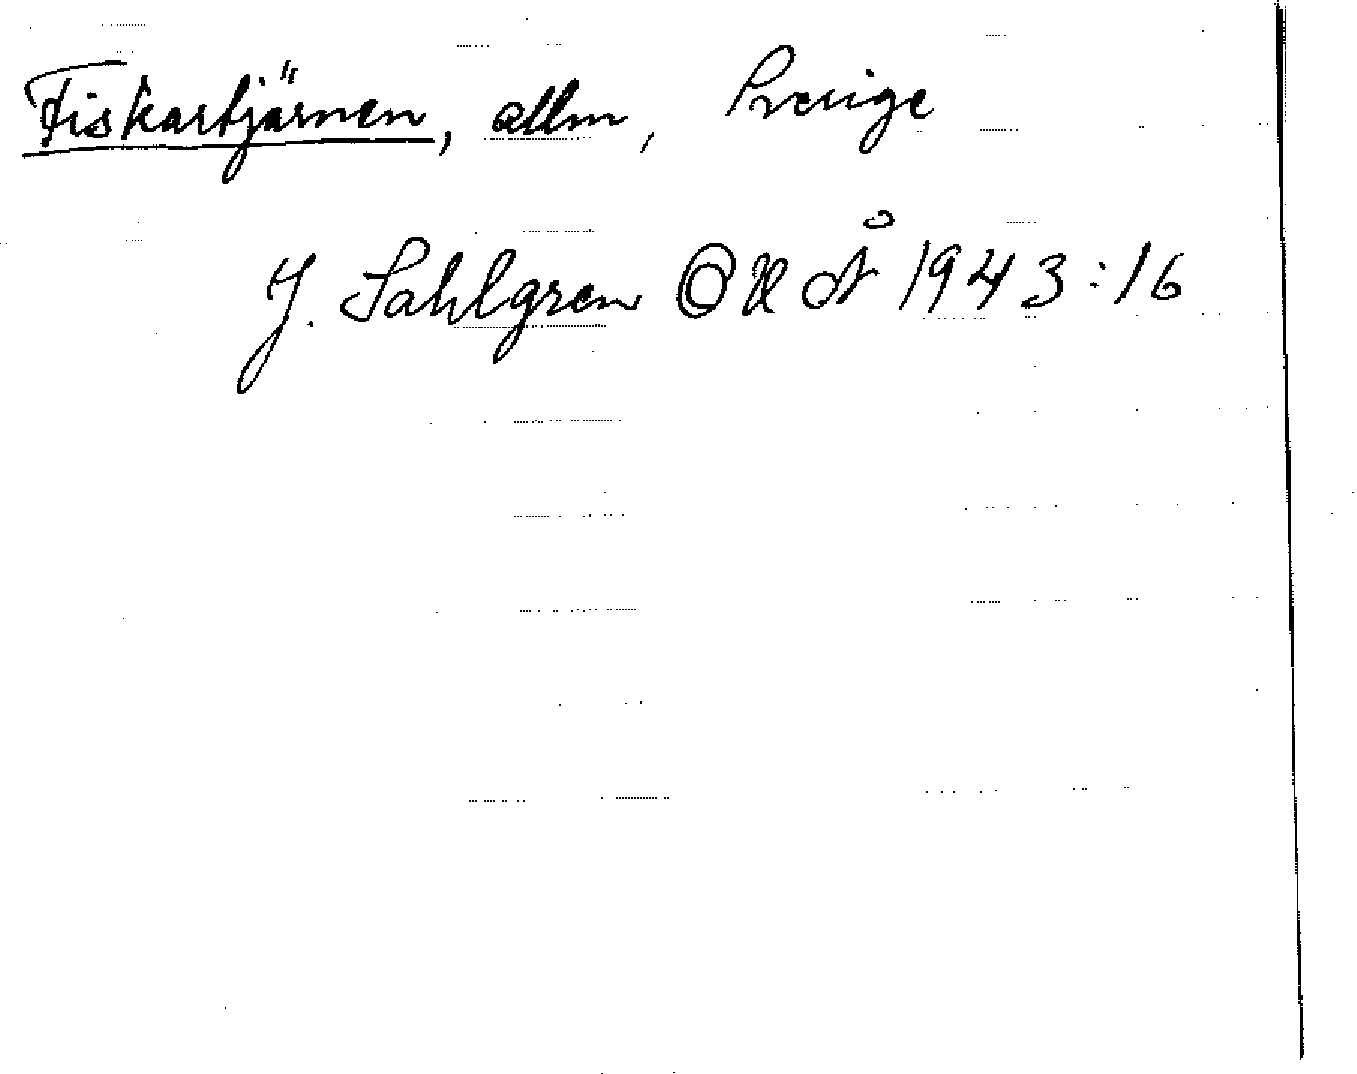 Fiskartjärnen, allm, Sverige
J. Sahlgren OUÅ 1943:16